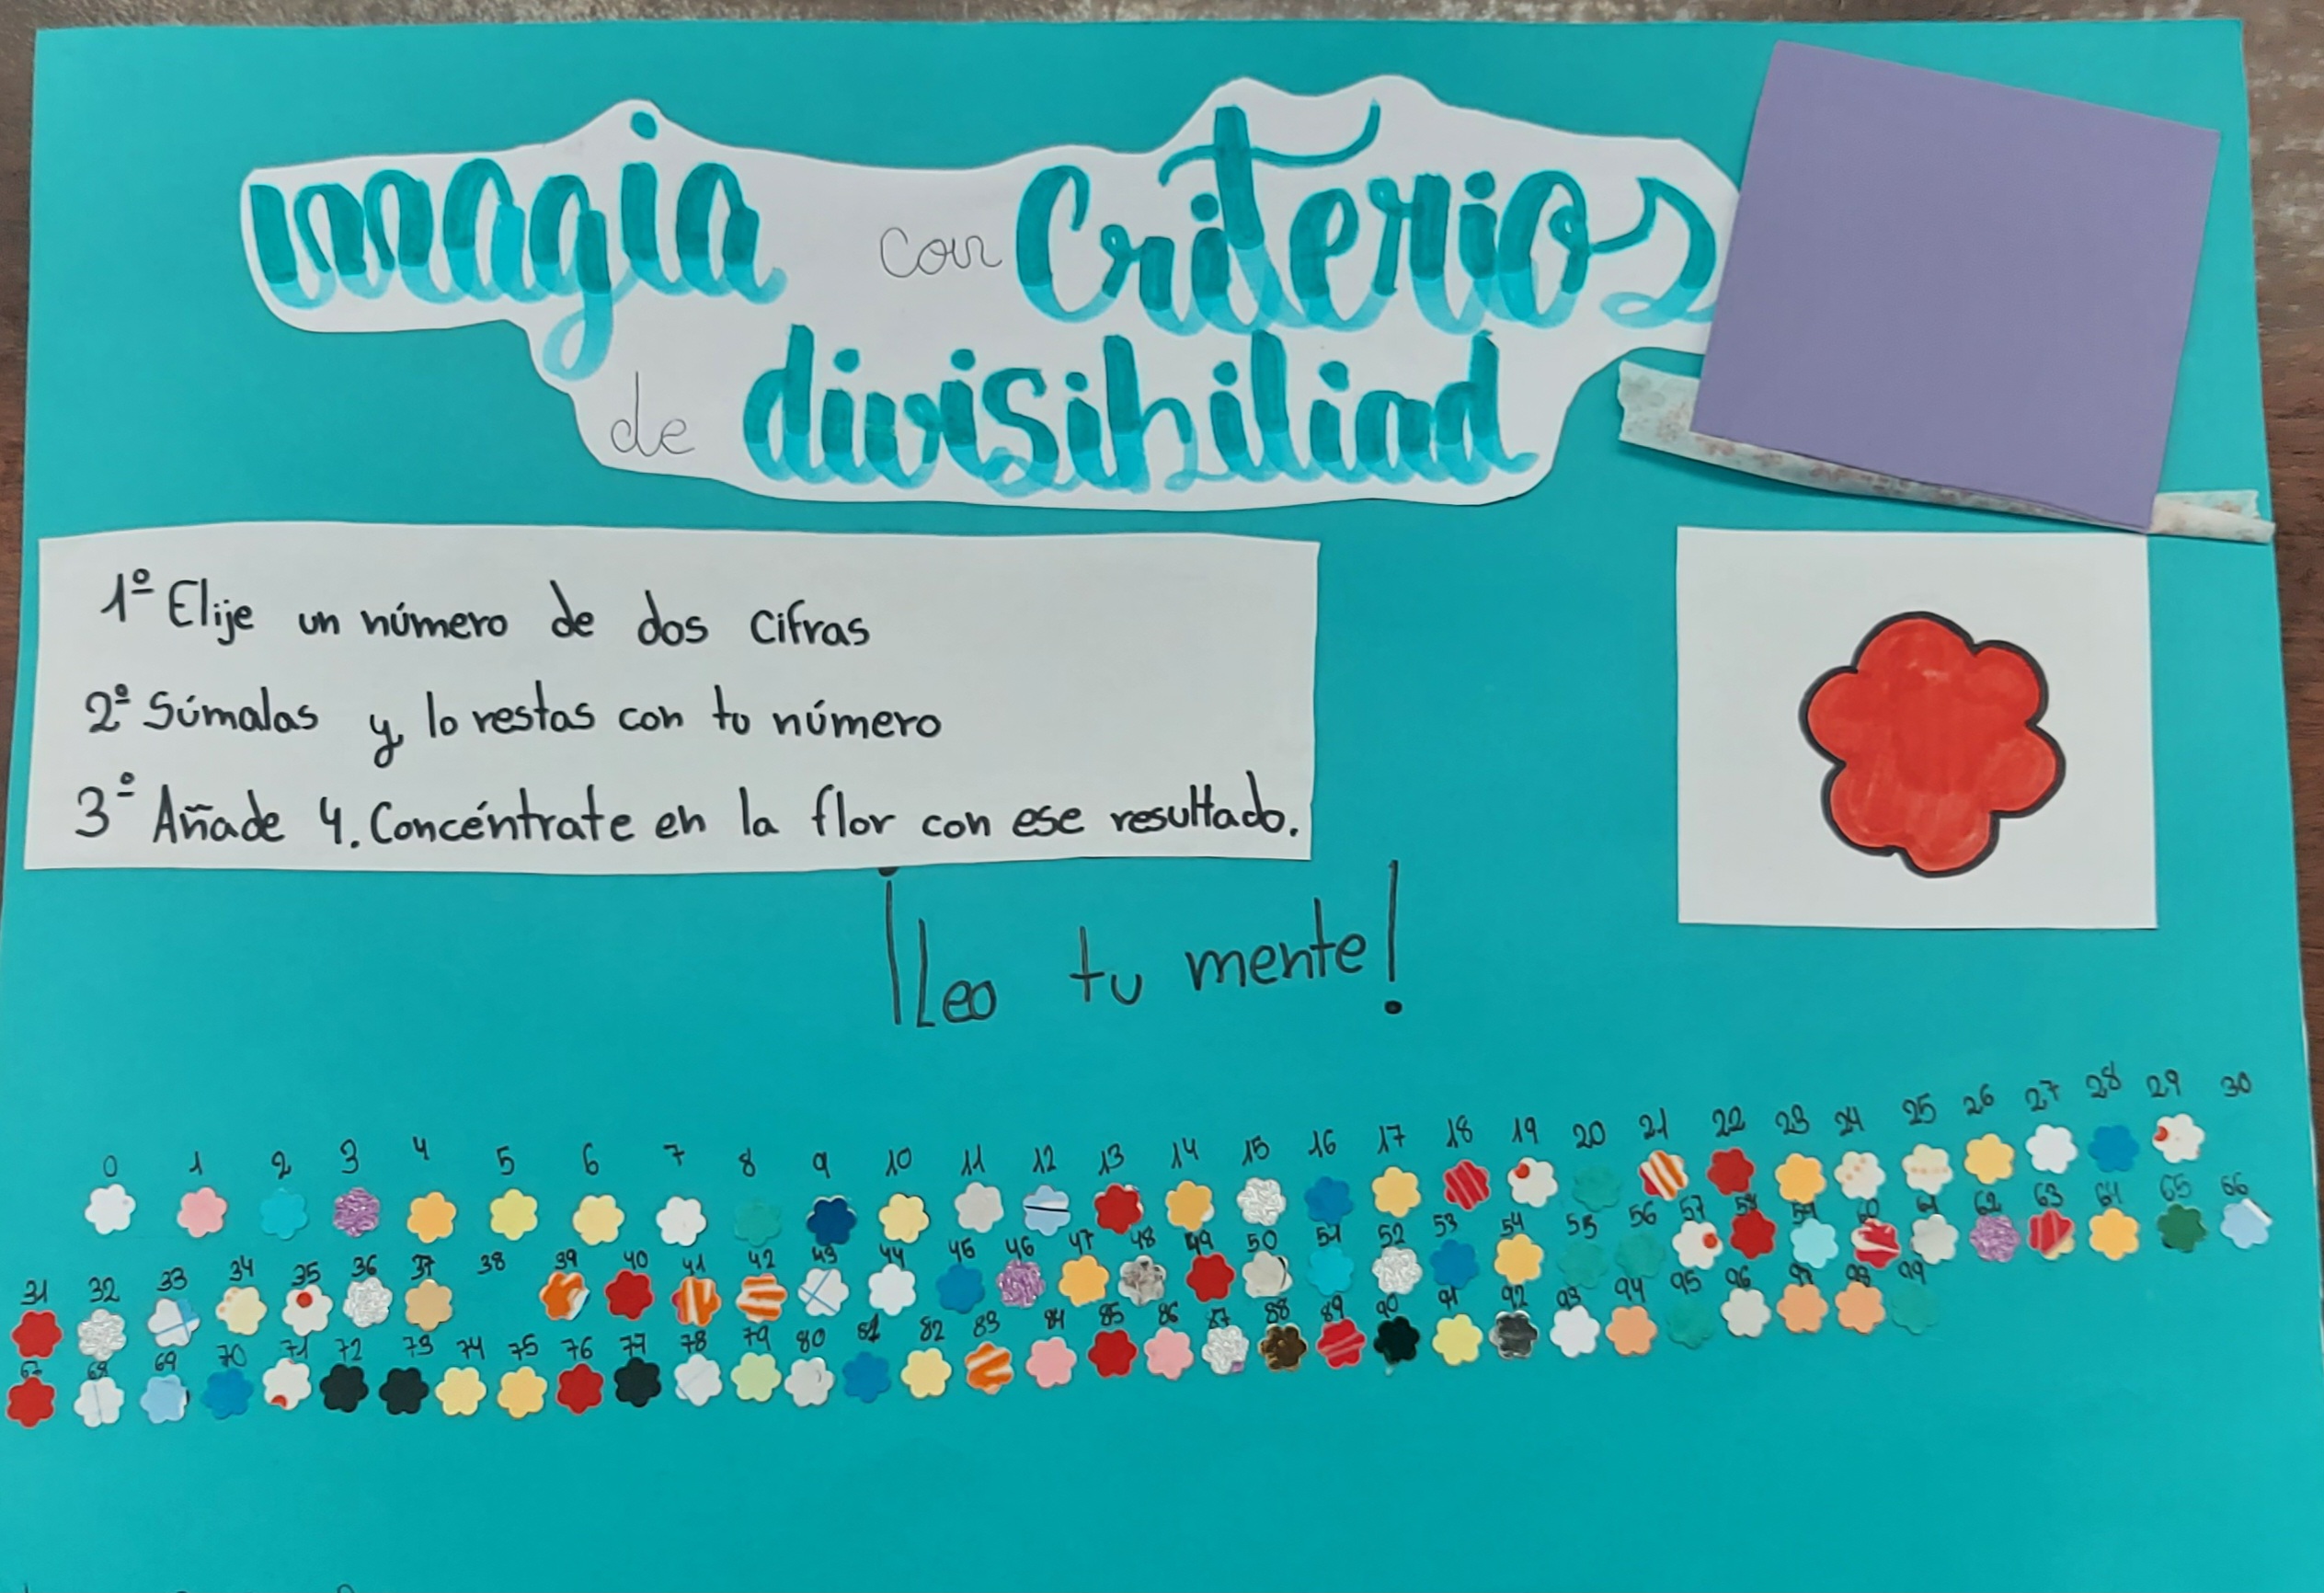 magia con Criterios
de divisibiliad
1º Elije un número de dos cifras
2º Súmalas y lo restas con tu número
3º Añade 4. Concéntrate en la flor con ese resultado.
¡Leo tu mente!
0 1 2 3 4 5 6 7 8 9 10 11 12 13 14 15 16 17 18 19 20 21 22 23 24 25 26 27 28 29 30
31 32 33 34 35 36 37 38 39 40 41 42 43 44 45 46 47 48 49 50 51 52 53 54 55 56 57 58 59 60 61 62 63 64 65 66
67 68 69 70 71 72 73 74 75 76 77 78 79 80 81 82 83 84 85 86 87 88 89 90 91 92 93 94 95 96 97 98 99